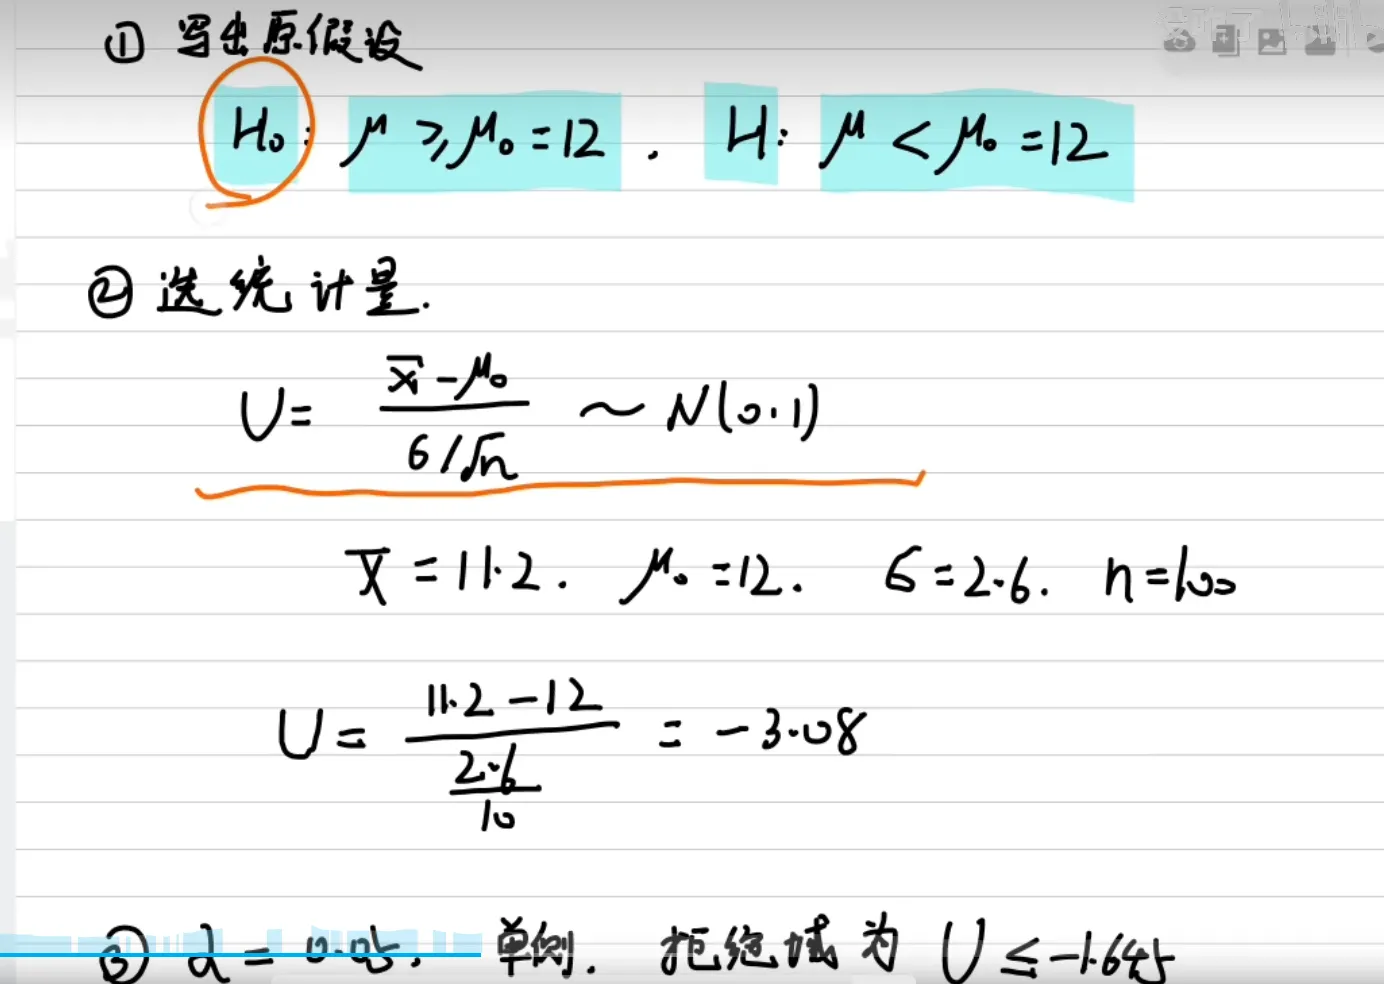 ① 写出原假设
H₀: μ ≥ μ₀ = 12 . H: μ < μ₀ = 12
② 选统计量.
U = (x̄ - μ₀) / (6/√n) ~ N(0.1)
x̄ = 11.2. μ₀ = 12. 6 = 2.6. n = 100
U = (11.2 - 12) / (2.6/10) = -3.08
③ α = 0.05. 单侧. 拒绝域为 U ≤ -1.645